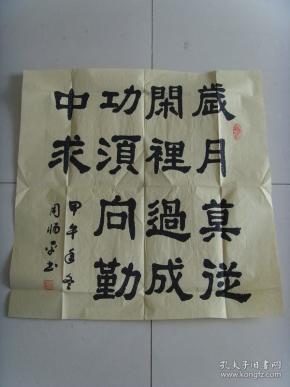 歲月莫從
閑裡過成
功須向勤
中求
甲午年冬
周
书
孔夫子旧书网